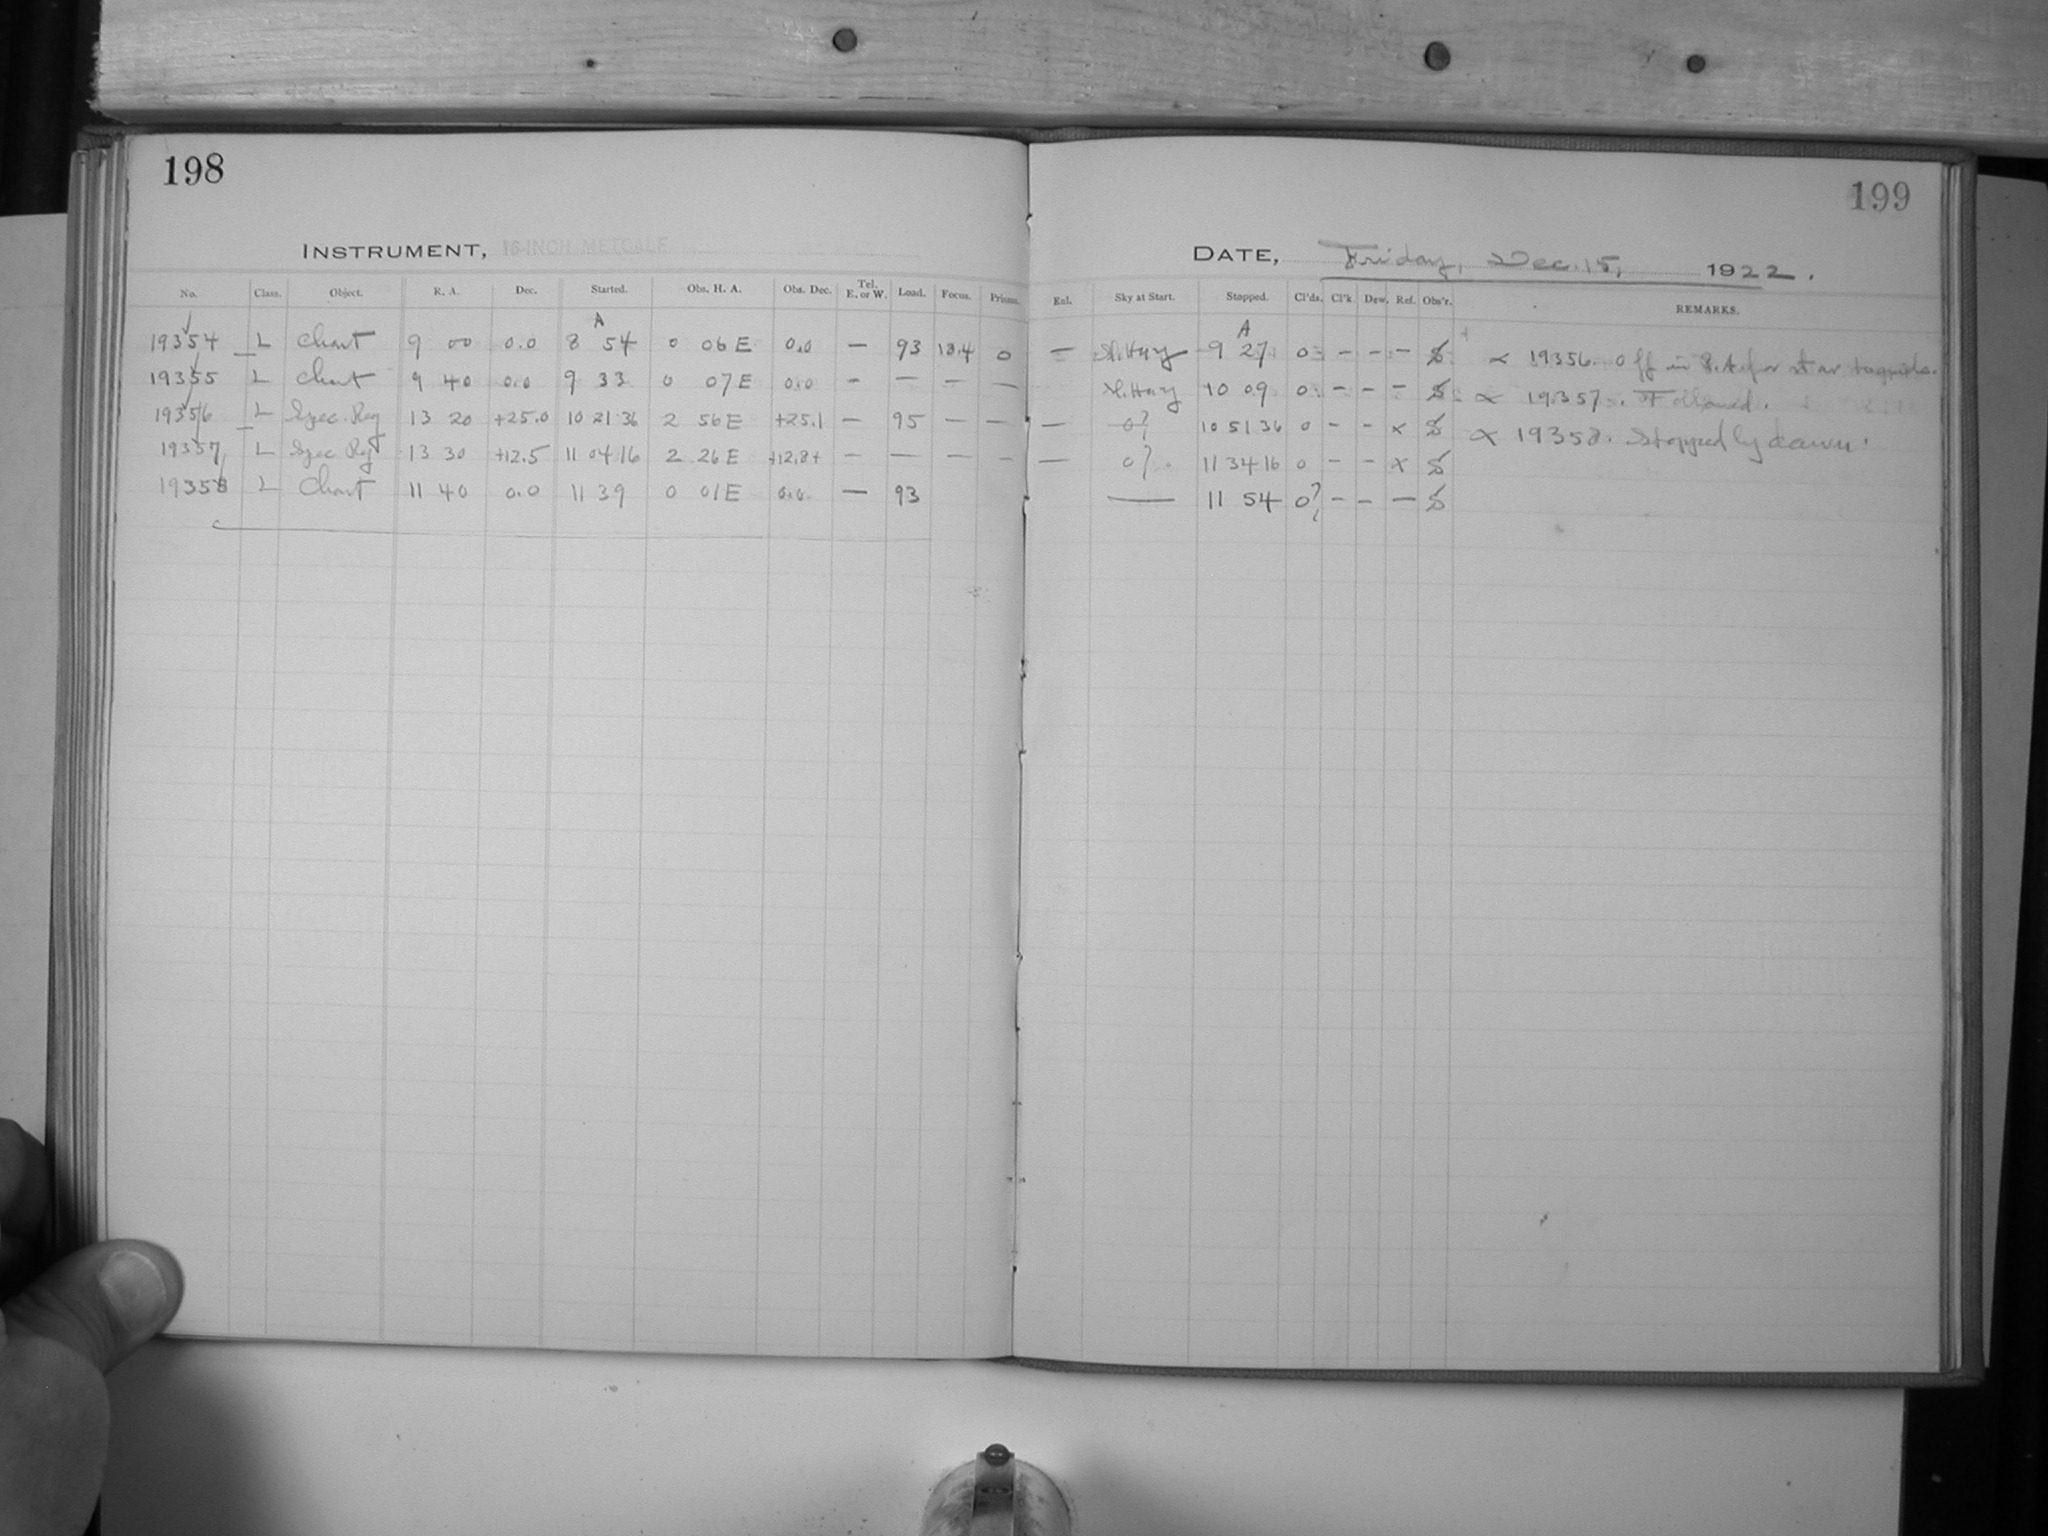 198
199
INSTRUMENT, 16-INCH METCALF
DATE, Friday, Dec. 15, 1922.
No. Class. Object. R. A. Dec. Started. Obs. H. A. Obs. Dec. Tel. E. or W. Load. Focus. Prisms. Enl. Sky at Start. Stopped. Cl'ds. Cl'k. Dew. Ref. Obs'r. REMARKS.
A A
19354 L Chart 9 00 0.0 8 54 0 06 E 0.0 — 93 13.4 0 — Sl. Hazy 9 27 0 — — — S ∝ 19356. Off in R.A. for star
19355 L Chart 9 40 0.0 9 33 0 07 E 0.0 — — — — Sl. Hazy 10 09 0 — — — S ∝ 19357. Followed.
19356 L Spec. Reg 13 20 +25.0 10 21 36 2 56 E +25.1 — 95 — — — 0? 10 51 36 0 — — x S ∝ 19358. Stopped by dawn.
19357 L Spec. Reg 13 30 +12.5 11 04 16 2 26 E +12.8+ — — — — — 0? 11 34 16 0 — — x S
19358 L Chart 11 40 0.0 11 39 0 01 E 0.0 — 93 — 11 54 0? — — — S